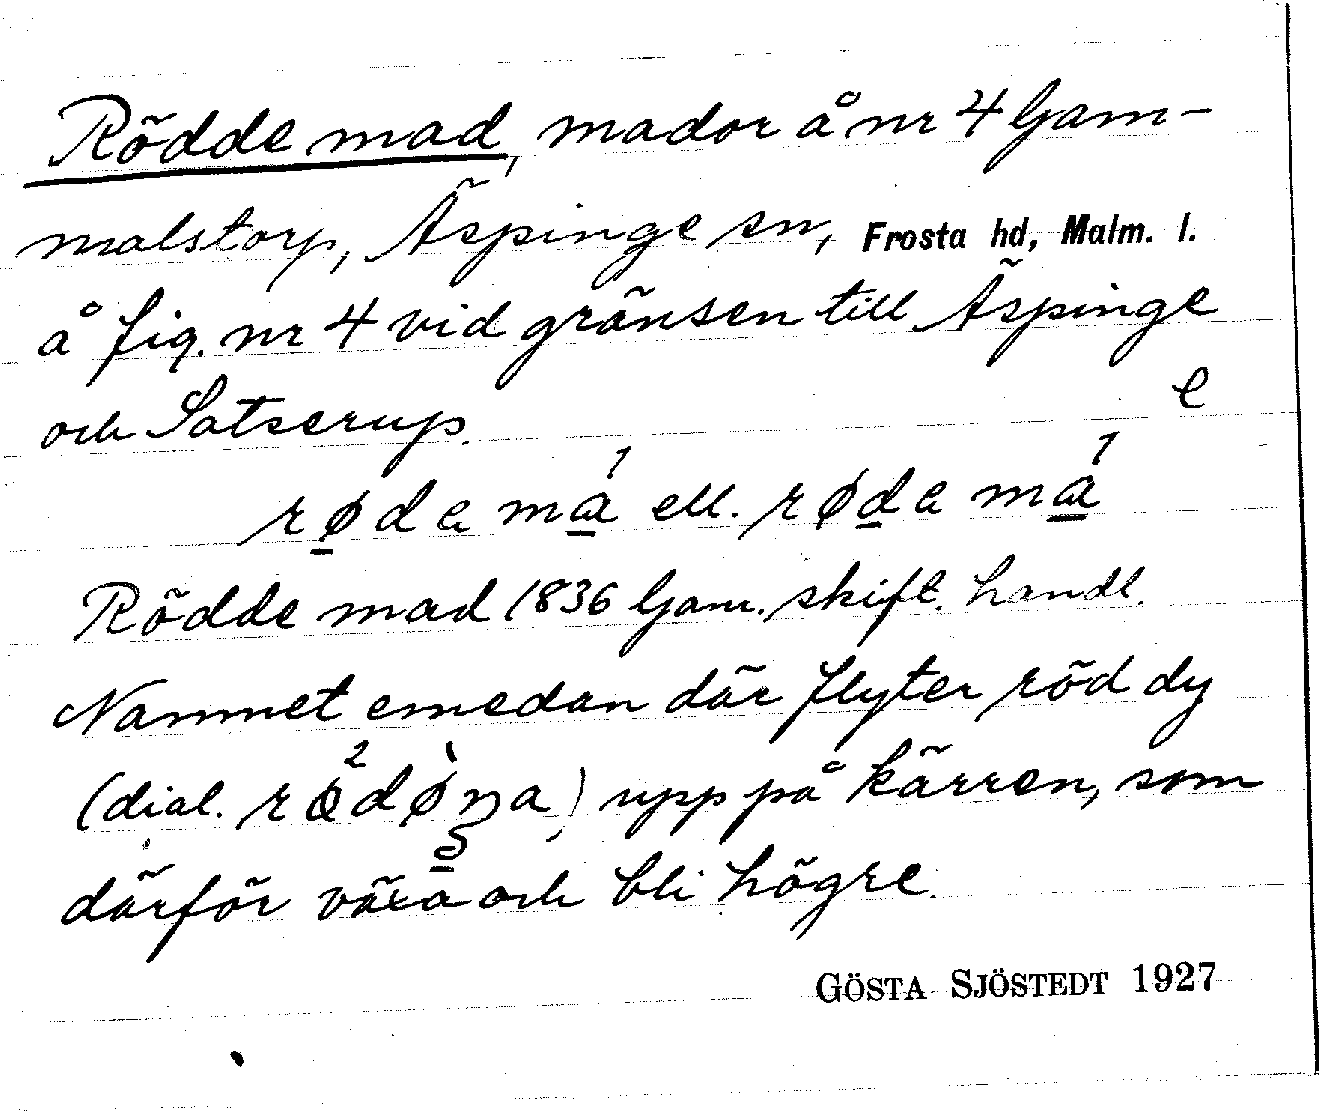 Rödde mad, mador å nr 4 Gam-
malstorp, Äspinge sn, Frosta hd, Malm. l.
å fig. nr 4 vid gränsen till Äspinge
och Satserup. e
rø̱da ma̱¹ ell. røḏa ma̱¹
Rödde mad 1836 Gam. skift. handl.
Namnet emedan där flyter röd dy
(dial. ) upp på kärren, som
därför växa och bli högre.
GÖSTA SJÖSTEDT 1927